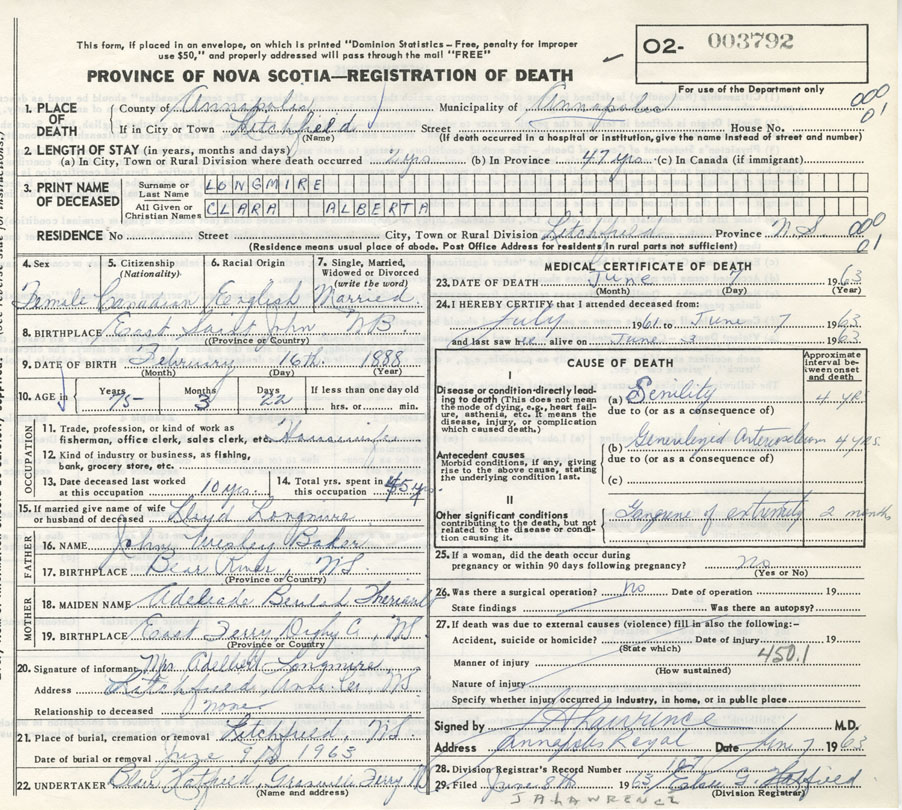 This form, if placed in an envelope, on which is printed "Dominion Statistics – Free, penalty for improper
use $50," and properly addressed will pass through the mail "FREE"
O2- 003792
For use of the Department only
PROVINCE OF NOVA SCOTIA—REGISTRATION OF DEATH
1. PLACE OF DEATH
County of Annapolis Municipality of Annapolis 000
01
If in City or Town Litchfield Street House No.
(Name) (If death occurred in a hospital or institution, give the name instead of street and number)
2. LENGTH OF STAY (in years, months and days)
(a) In City, Town or Rural Division where death occurred 2 yrs (b) In Province 47 yrs (c) In Canada (if immigrant)
3. PRINT NAME OF DECEASED
Surname or Last Name LONGMIRE
All Given or Christian Names CLARA ALBERTA
RESIDENCE No Street City, Town or Rural Division Litchfield Province N.S. 000
01
(Residence means usual place of abode. Post Office Address for residents in rural parts not sufficient)
4. Sex 5. Citizenship (Nationality) 6. Racial Origin 7. Single, Married, Widowed or Divorced (write the word)
Female Canadian English Married
8. BIRTHPLACE East Saint John, NB.
(Province or Country)
9. DATE OF BIRTH February 16th 1888
(Month) (Day) (Year)
10. AGE in Years 75 Months 3 Days 22 If less than one day old hrs. or min.
OCCUPATION
11. Trade, profession, or kind of work as
fisherman, office clerk, sales clerk, etc. Housewife
12. Kind of industry or business, as fishing,
bank, grocery store, etc.
13. Date deceased last worked at this occupation 10 yrs. 14. Total yrs. spent in this occupation 45 yrs.
15. If married give name of wife
or husband of deceased Lloyd Longmire
FATHER
16. NAME John Wesley Baker
17. BIRTHPLACE Bear River, NS.
(Province or Country)
MOTHER
18. MAIDEN NAME Adelaide Beulah Theriault
19. BIRTHPLACE East Ferry, Digby C, NS
(Province or Country)
20. Signature of informant Mrs Longmire
Address Litchfield, Anna. Co. NS
Relationship to deceased none
21. Place of burial, cremation or removal Litchfield, NS.
Date of burial or removal June 9 1963
22. UNDERTAKER Granville Ferry
(Name and address)
MEDICAL CERTIFICATE OF DEATH
23. DATE OF DEATH June 7 1963
(Month) (Day) (Year)
24. I HEREBY CERTIFY that I attended deceased from:
July 1961 to June 7 1963
and last saw her alive on June 3 1963
CAUSE OF DEATH
Approximate interval between onset and death
I
Disease or condition directly leading to death (This does not mean the mode of dying, e.g., heart failure, asthenia, etc. It means the disease, injury, or complication which caused death.)
(a) Senility 4 yrs
due to (or as a consequence of)
Antecedent causes
Morbid conditions, if any, giving rise to the above cause, stating the underlying condition last.
(b) Generalized 4 yrs.
due to (or as a consequence of)
(c)
II
Other significant conditions
contributing to the death, but not related to the disease or condition causing it.
Gangrene of extremity 2 months
25. If a woman, did the death occur during
pregnancy or within 90 days following pregnancy? No
(Yes or No)
26. Was there a surgical operation? No Date of operation 19
State findings Was there an autopsy?
27. If death was due to external causes (violence) fill in also the following:–
Accident, suicide or homicide? Date of injury 19
(State which) 450.1
Manner of injury
(How sustained)
Nature of injury
Specify whether injury occurred in industry, in home, or in public place
Signed by J A Lawrence M.D.
Address Annapolis Royal Date June 7 1963
28. Division Registrar's Record Number
29. Filed June 8th 1963
(Division Registrar)
J A LAWRENCE